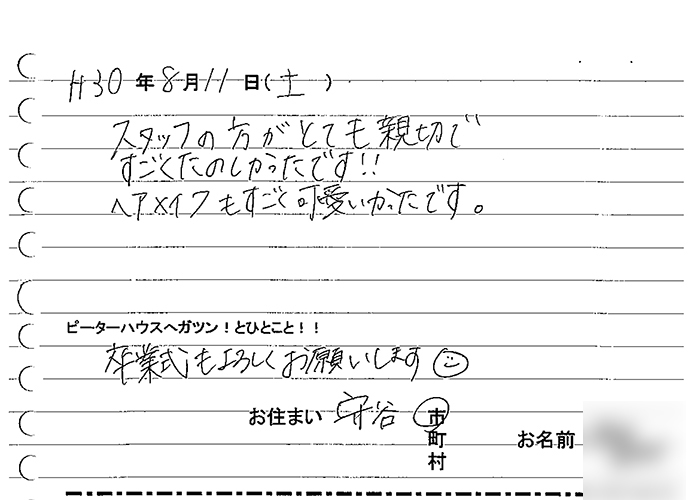 H30年8月11日(土)
スタッフの方がとても親切で
すごくたのしかったです!!
ヘアメイクもすごく可愛いかったです。
ピーターハウスへガツン!とひとこと!!
卒業式もよろしくお願いします
お住まい 守谷 市
町
村
お名前